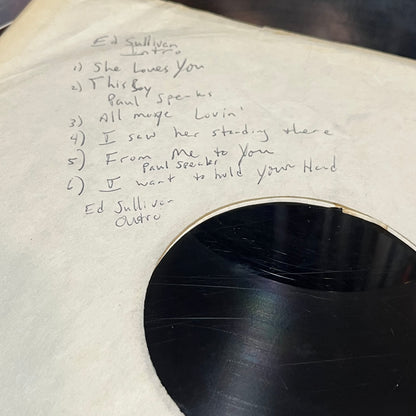 Ed Sullivan
Intro
1) She Loves You
2) This Boy
Paul Speaks
3) All moge Lovin'
4) I saw her standing there
5) From Me to You
Paul Speaks
6) I want to hold your Hand
Ed Sullivan
Outro